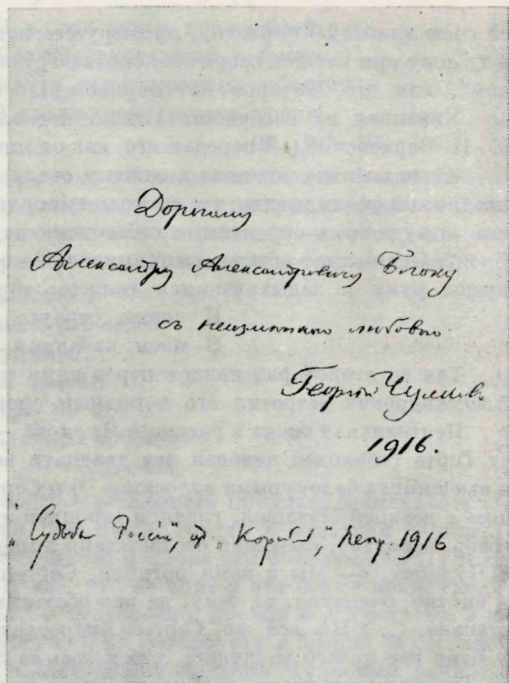 Дорогому
Александру Александровичу Блоку
съ неизменною любовью
Георгий Чулков.
1916.
„Судьба Россіи", изд. „Корабль", Петр. 1916